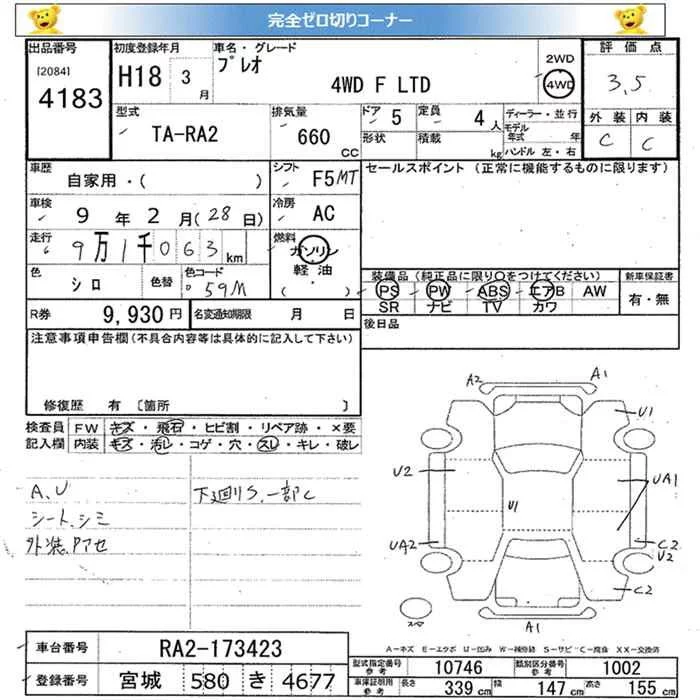 完全ゼロ切りコーナー
出品番号
[2084]
4183
初度登録年月
H18 3月
車名・グレード
プレオ
4WD F LTD
2WD
4WD
評価点
3.5
外装 内装
C C
型式
TA-RA2
排気量
660 CC
ドア 5
定員 4人
形状
積載 kg
ディーラー・並行
モデル年式 年
ハンドル 左・右
車歴
自家用・( )
シフト F5MT
車検
9年2月(28日)
冷房 AC
走行
9万1千063km
燃料
ガソリン
軽油
( )
色 シロ
色替
色コード 59M
セールスポイント(正常に機能するものに限ります)
装備品(純正品に限り○をつけてください)
PS PW ABS エアB AW
SR ナビ TV カワ
新車保証書
有・無
R券 9,930円
名変通知期限 月 日
後日品
注意事項申告欄(不具合内容等は具体的に記入して下さい)
修復歴 有 〔箇所 〕
検査員記入欄
FW キズ・飛石・ヒビ割・リペア跡・×要
内装 キズ・汚レ・コゲ・穴・スレ・キレ・破レ
A、U
シート、シミ
外装、アセ
下廻りS、一部C
A2 A1
U1
U2
U1
UA1
UA2
C2
U2
C2
A1
A-キズ E-エクボ U-凹み W-補修跡 S-サビ C-腐食 XX-交換済
車台番号 RA2-173423
登録番号 宮城 580 き 4677
型式指定番号 参考 10746
類別区分番号 参考 1002
車庫証明用 参考 長さ 339 cm 幅 147 cm 高さ 155 cm